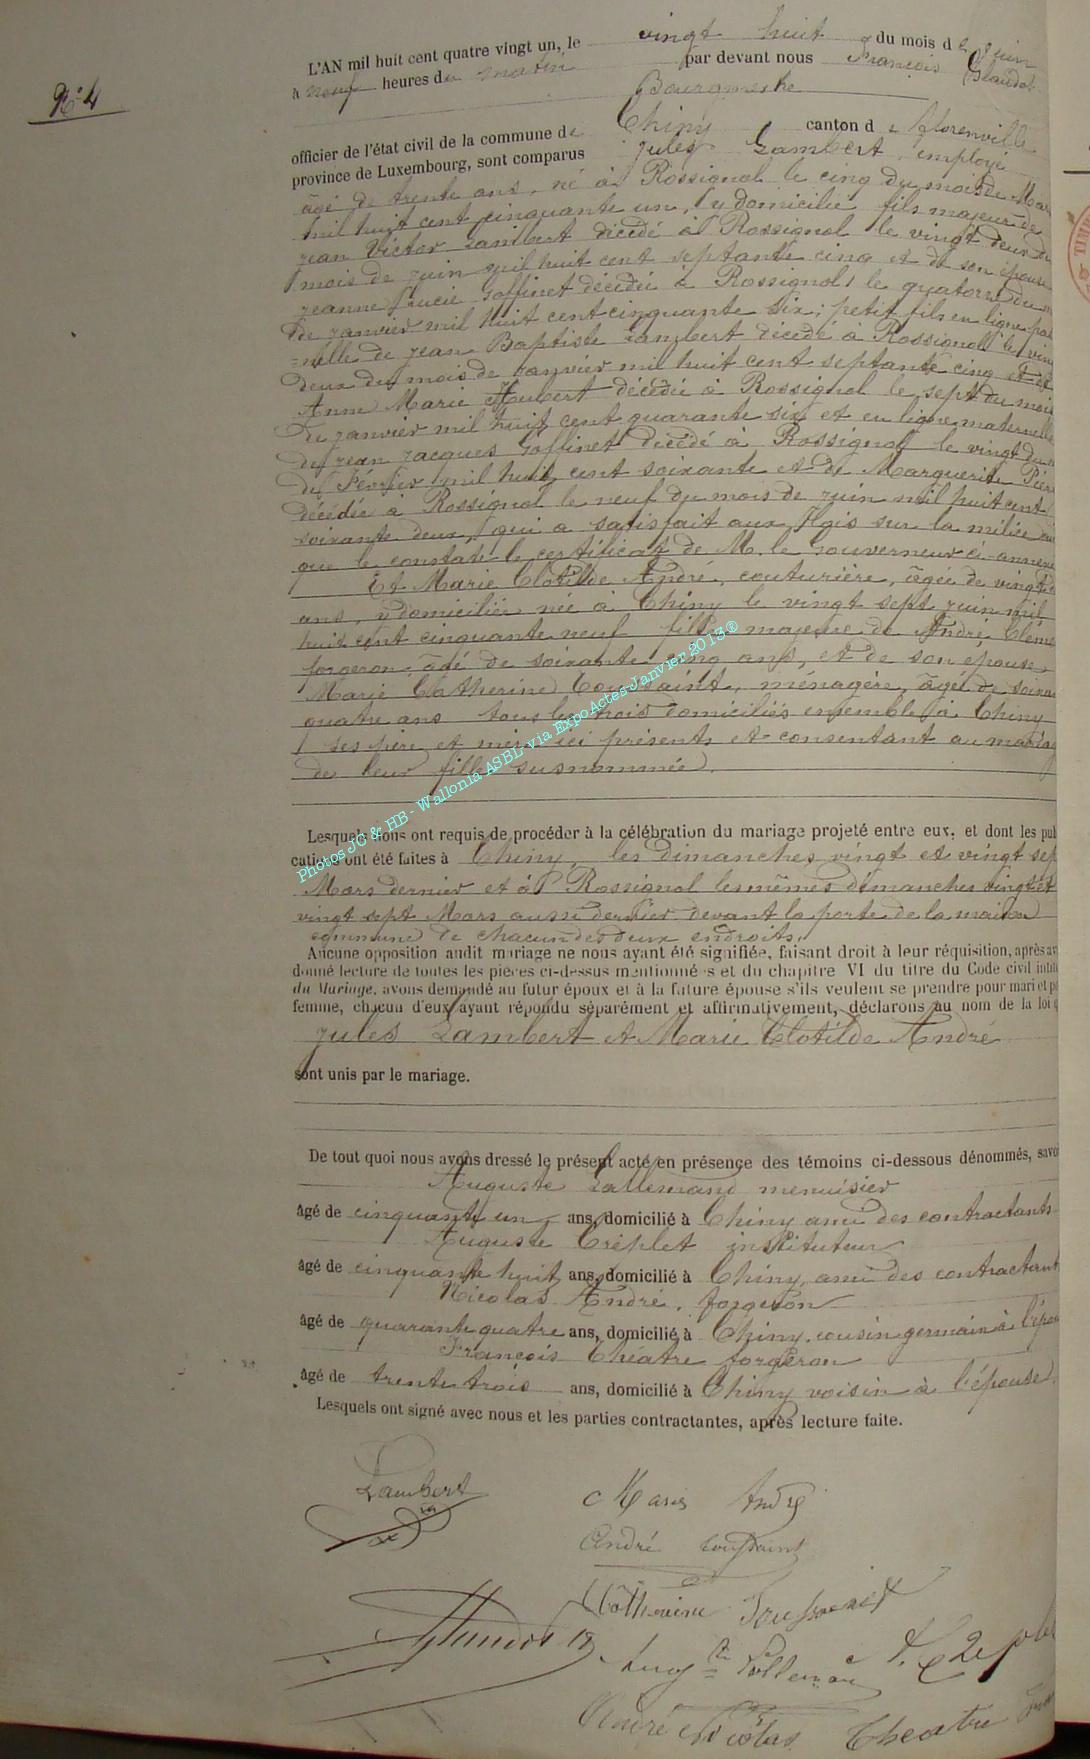 N° 4
L'AN mil huit cent quatre vingt un, le vingt huit du mois de Juin
à neuf heures du matin par devant nous François
Bourgmestre
officier de l'état civil de la commune de Chiny canton de Florenville
province de Luxembourg, sont comparus Jules Lambert, employé
âgé de trente ans, né à Rossignol le cinq du mois de Mars
mil huit cent cinquante un, y domicilié fils majeur de
Jean Victor Lambert décédé à Rossignol le vingt deux du
mois de Juin mil huit cent septante cinq et de son épouse
Jeanne Lucie Goffinet décédée à Rossignol le quatorze du
de Janvier mil huit cent cinquante six; petit fils en ligne pater
-nelle de Jean Baptiste Lambert décédé à Rossignol le vingt
deux du mois de Janvier mil huit cent septante cinq et de
Anne Marie Hubert décédée à Rossignol le sept du mois
de Janvier mil huit cent quarante six et en ligne maternelle
de Jean Jacques Goffinet décédé à Rossignol le vingt du
de Février mil huit cent soixante et de Marguerite
décédée à Rossignol le neuf du mois de Juin mil huit cent
soixante deux, qui a satisfait aux lois sur la milice
que le constate le certificat de M. le Gouverneur ci-annexé
Et Marie Clotilde André, couturière, âgée de vingt
ans, y domiciliée née à Chiny le vingt sept Juin mil
huit cent cinquante neuf fille majeure de André
forgeron, âgé de soixante cinq ans, et de son épouse
Marie Catherine Toussaint, ménagère, âgée de
quatre ans tous les trois domiciliés ensemble à Chiny
ses père et mère ici présents et consentant au mariage
de leur fille susnommée.
Photos JC & HB - Wallonia ASBL via ExpoActes-Janvier 2013®
Lesquels nous ont requis de procéder à la célébration du mariage projeté entre eux, et dont les publi
cations ont été faites à Chiny, les dimanches vingt et vingt sept
Mars dernier et à Rossignol les mêmes dimanches vingt et
vingt sept Mars aussi dernier devant la porte de la maison
commune de chacun des deux endroits.
Aucune opposition audit mariage ne nous ayant été signifiée, faisant droit à leur réquisition, après av
donné lecture de toutes les pièces ci-dessus mentionnées et du chapitre VI du titre du Code civil intit
du Mariage, avons demandé au futur époux et à la future épouse s'ils veulent se prendre pour mari et p
femme, chacun d'eux ayant répondu séparément et affirmativement, déclarons au nom de la loi q
Jules Lambert et Marie Clotilde André
sont unis par le mariage.
De tout quoi nous avons dressé le présent acte en présence des témoins ci-dessous dénommés, savo
Auguste Lallemand menuisier
âgé de cinquante un ans, domicilié à Chiny ami des contractants
Auguste Créplet instituteur
âgé de cinquante huit ans, domicilié à Chiny, ami des contractant
Nicolas André, forgeron
âgé de quarante quatre ans, domicilié à Chiny, cousin germain à l'épou
François Théâtre forgeron
âgé de trente trois ans, domicilié à Chiny voisin à l'épouse.
Lesquels ont signé avec nous et les parties contractantes, après lecture faite.
Lambert
Marie André
André Toussaint
Catherine Toussaint
André Nicolas Theatre